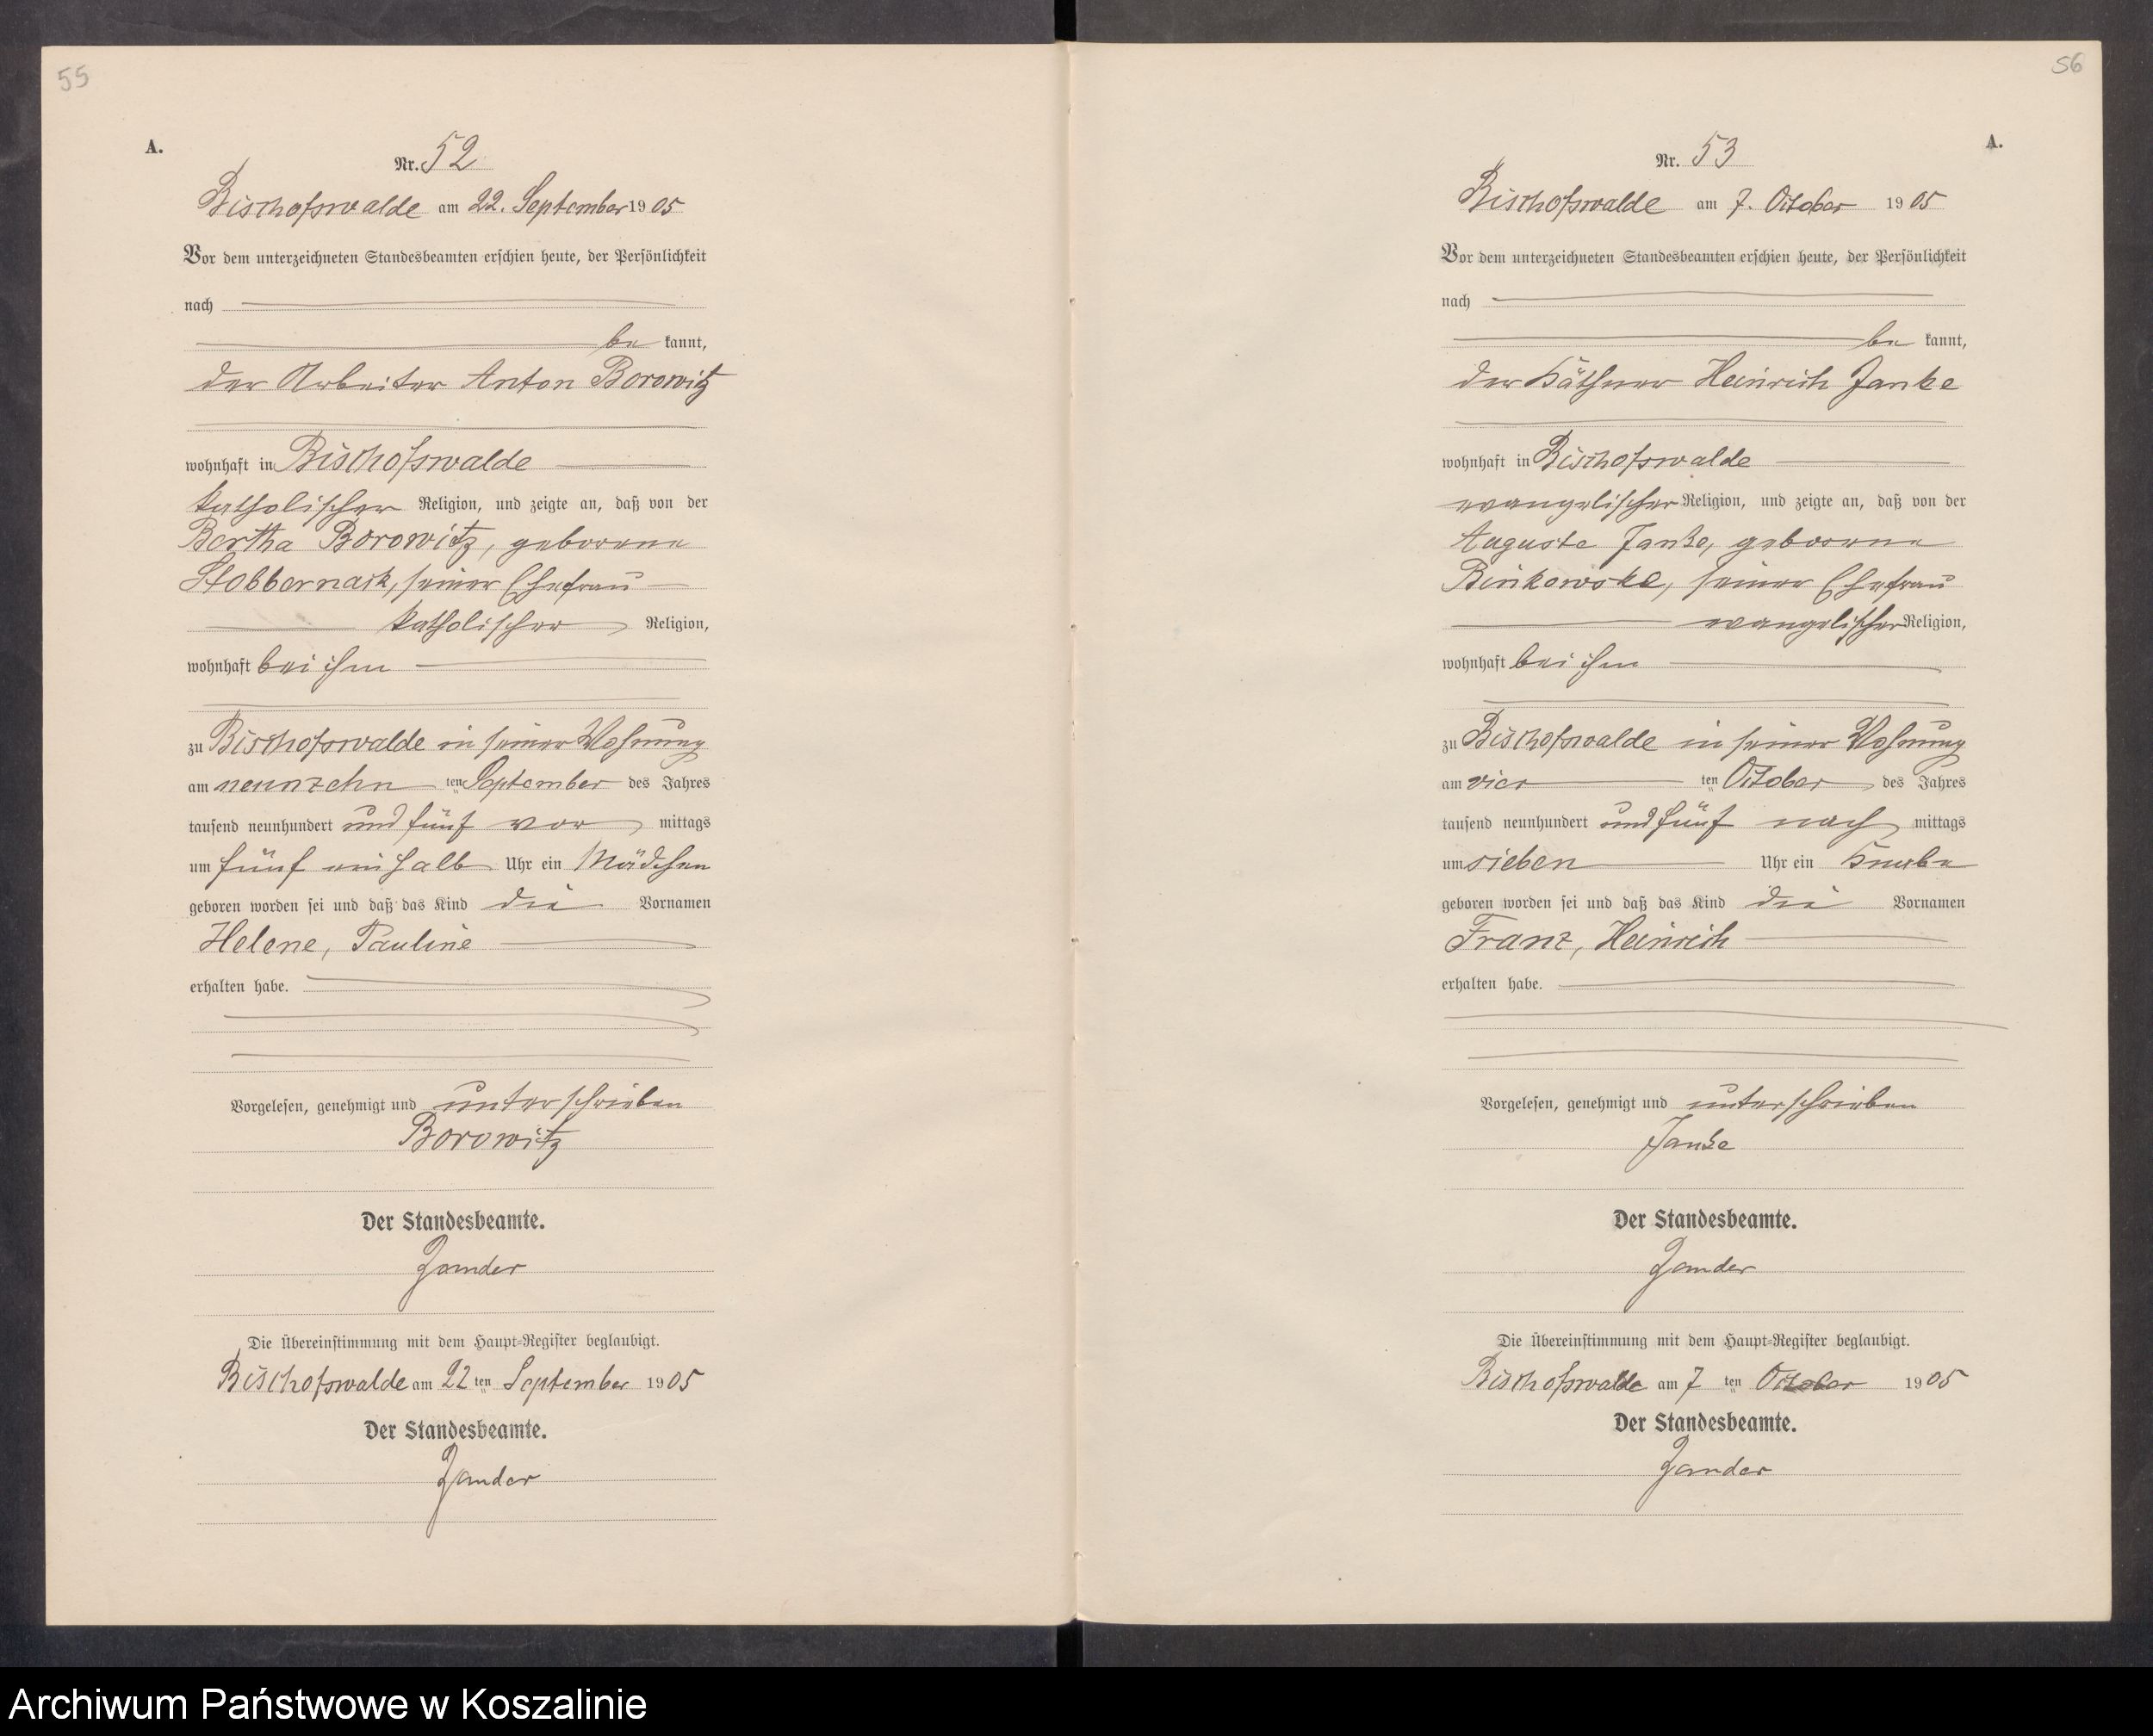 55
A.
Nr. 52
Bischofswalde am 22. September 1905
Vor dem unterzeichneten Standesbeamten erschien heute, der Persönlichkeit
nach
be kannt,
der Arbeiter Anton Borowitz
wohnhaft in Bischofswalde
katholischer Religion, und zeigte an, daß von der
Bertha Borowitz, geborene
Stobbernack, seiner Ehefrau
katholischer Religion,
wohnhaft bei ihm
zu Bischofswalde in seiner Wohnung
am neunzehn ten September des Jahres
tausend neunhundert und fünf vor mittags
um fünf ein halb Uhr ein Mädchen
geboren worden sei und daß das Kind die Vornamen
Helene, Pauline
erhalten habe.
Vorgelesen, genehmigt und unterschrieben
Borowitz
Der Standesbeamte.
Zander
Die Übereinstimmung mit dem Haupt-Register beglaubigt.
Bischofswalde am 22 ten September 1905
Der Standesbeamte.
Zander
56
A.
Nr. 53
Bischofswalde am 7. October 1905
Vor dem unterzeichneten Standesbeamten erschien heute, der Persönlichkeit
nach
be kannt,
der Käthner Heinrich Janke
wohnhaft in Bischofswalde
evangelischer Religion, und zeigte an, daß von der
Auguste Janke, geborene
Binkowske, seiner Ehefrau
evangelischer Religion,
wohnhaft bei ihm
zu Bischofswalde in seiner Wohnung
am vier ten October des Jahres
tausend neunhundert und fünf nach mittags
um sieben Uhr ein Knabe
geboren worden sei und daß das Kind die Vornamen
Franz, Heinrich
erhalten habe.
Vorgelesen, genehmigt und unterschrieben
Janke
Der Standesbeamte.
Zander
Die Übereinstimmung mit dem Haupt-Register beglaubigt.
Bischofswalde am 7 ten October 1905
Der Standesbeamte.
Zander
Archiwum Państwowe w Koszalinie